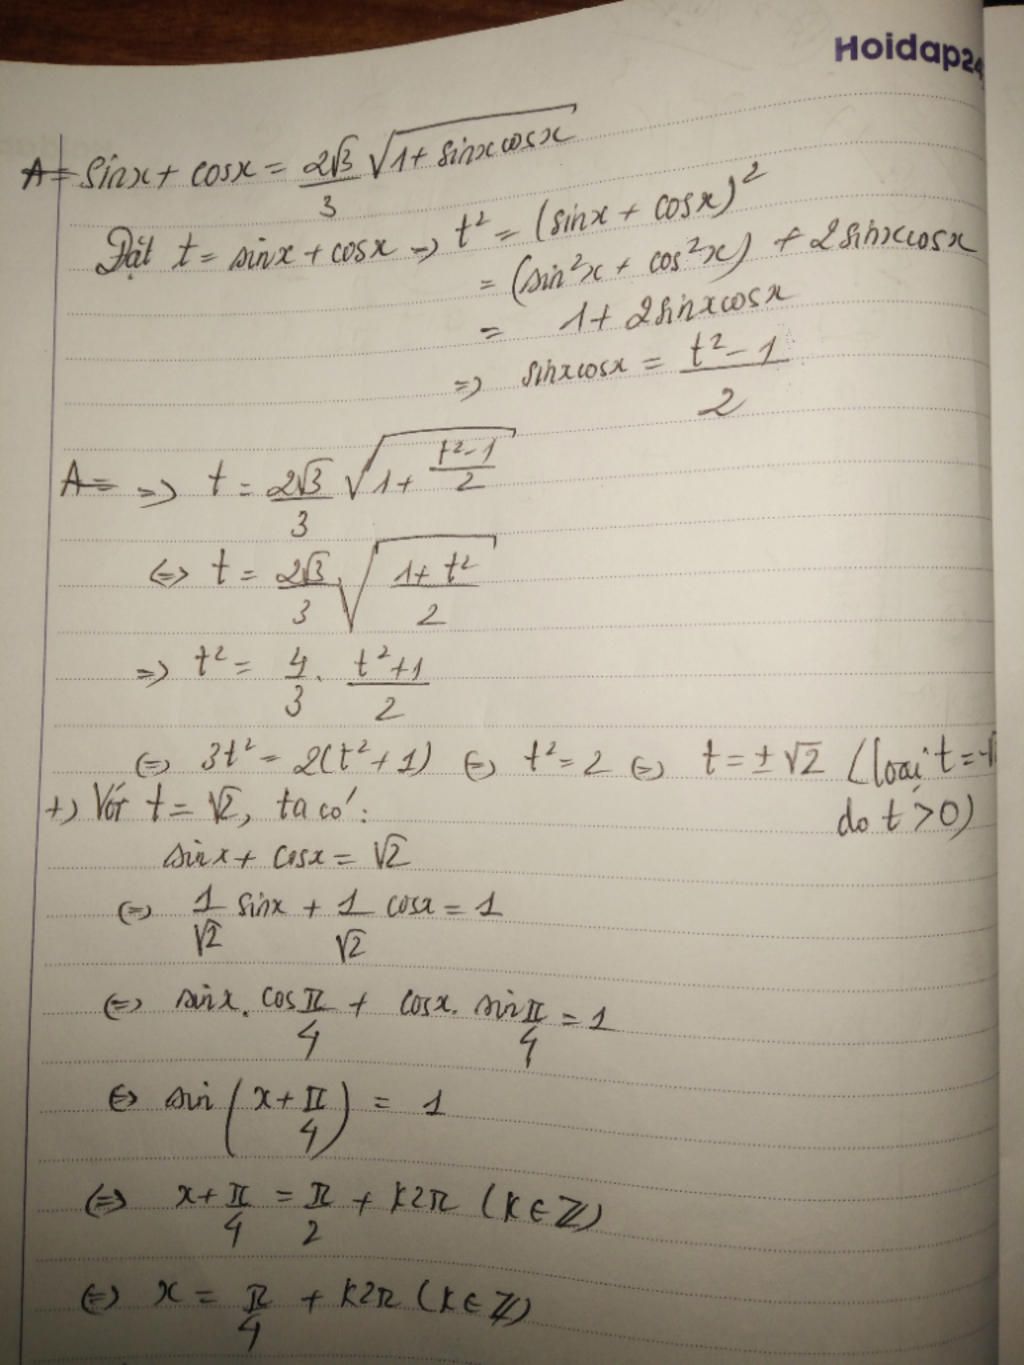 Hoidap24
A= sinx + cosx = 2√3/3 √(1 + sinxcosx)
Đặt t = sinx + cosx => t² = (sinx + cosx)²
= (sin²x + cos²x) + 2sinxcosx
= 1 + 2sinxcosx
=> sinxcosx = (t² - 1)/2
A= => t = 2√3/3 √(1 + (t² - 1)/2)
<=> t = 2√3/3 . √((1 + t²)/2)
=> t² = 4/3 . (t² + 1)/2
<=> 3t² = 2(t² + 1) <=> t² = 2 <=> t = ±√2 (loại t = -√
do t > 0)
+) Với t = √2, ta có:
sinx + cosx = √2
<=> 1/√2 sinx + 1/√2 cosx = 1
<=> sinx. cos π/4 + cosx. sin π/4 = 1
<=> sin(x + π/4) = 1
<=> x + π/4 = π/2 + k2π (k ∈ ℤ)
<=> x = π/4 + k2π (k ∈ ℤ)